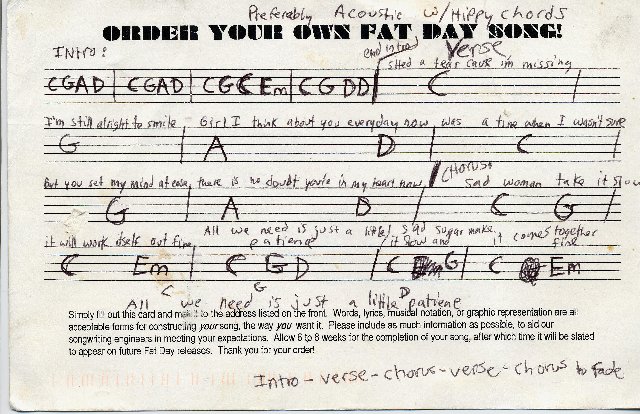 Preferably Acoustic w/Hippy chords
ORDER YOUR OWN FAT DAY SONG!
Intro: end intro Verse
shed a tear cause im missing
CGAD CGAD CGCEm CGDD C
I'm still alright to smile Girl I think about you everyday now was a time when I wasn't sure
G A D C
But you set my mind at ease, there is no doubt you're in my heart now Chorus: sad woman take it slow
G A D C G
it will work itself out fine, All we need is just a little patience sad sugar make it slow and it comes together fine
C Em C G D C G C Em
C G D
All we need is just a little patiene
Simply fill out this card and mail it to the address listed on the front. Words, lyrics, musical notation, or graphic representation are all
acceptable forms for constructing your song, the way you want it. Please include as much information as possible, to aid our
songwriting engineers in meeting your expectations. Allow 6 to 8 weeks for the completion of your song, after which time it will be slated
to appear on future Fat Day releases. Thank you for your order!
Intro - verse - chorus - verse - chorus to fade